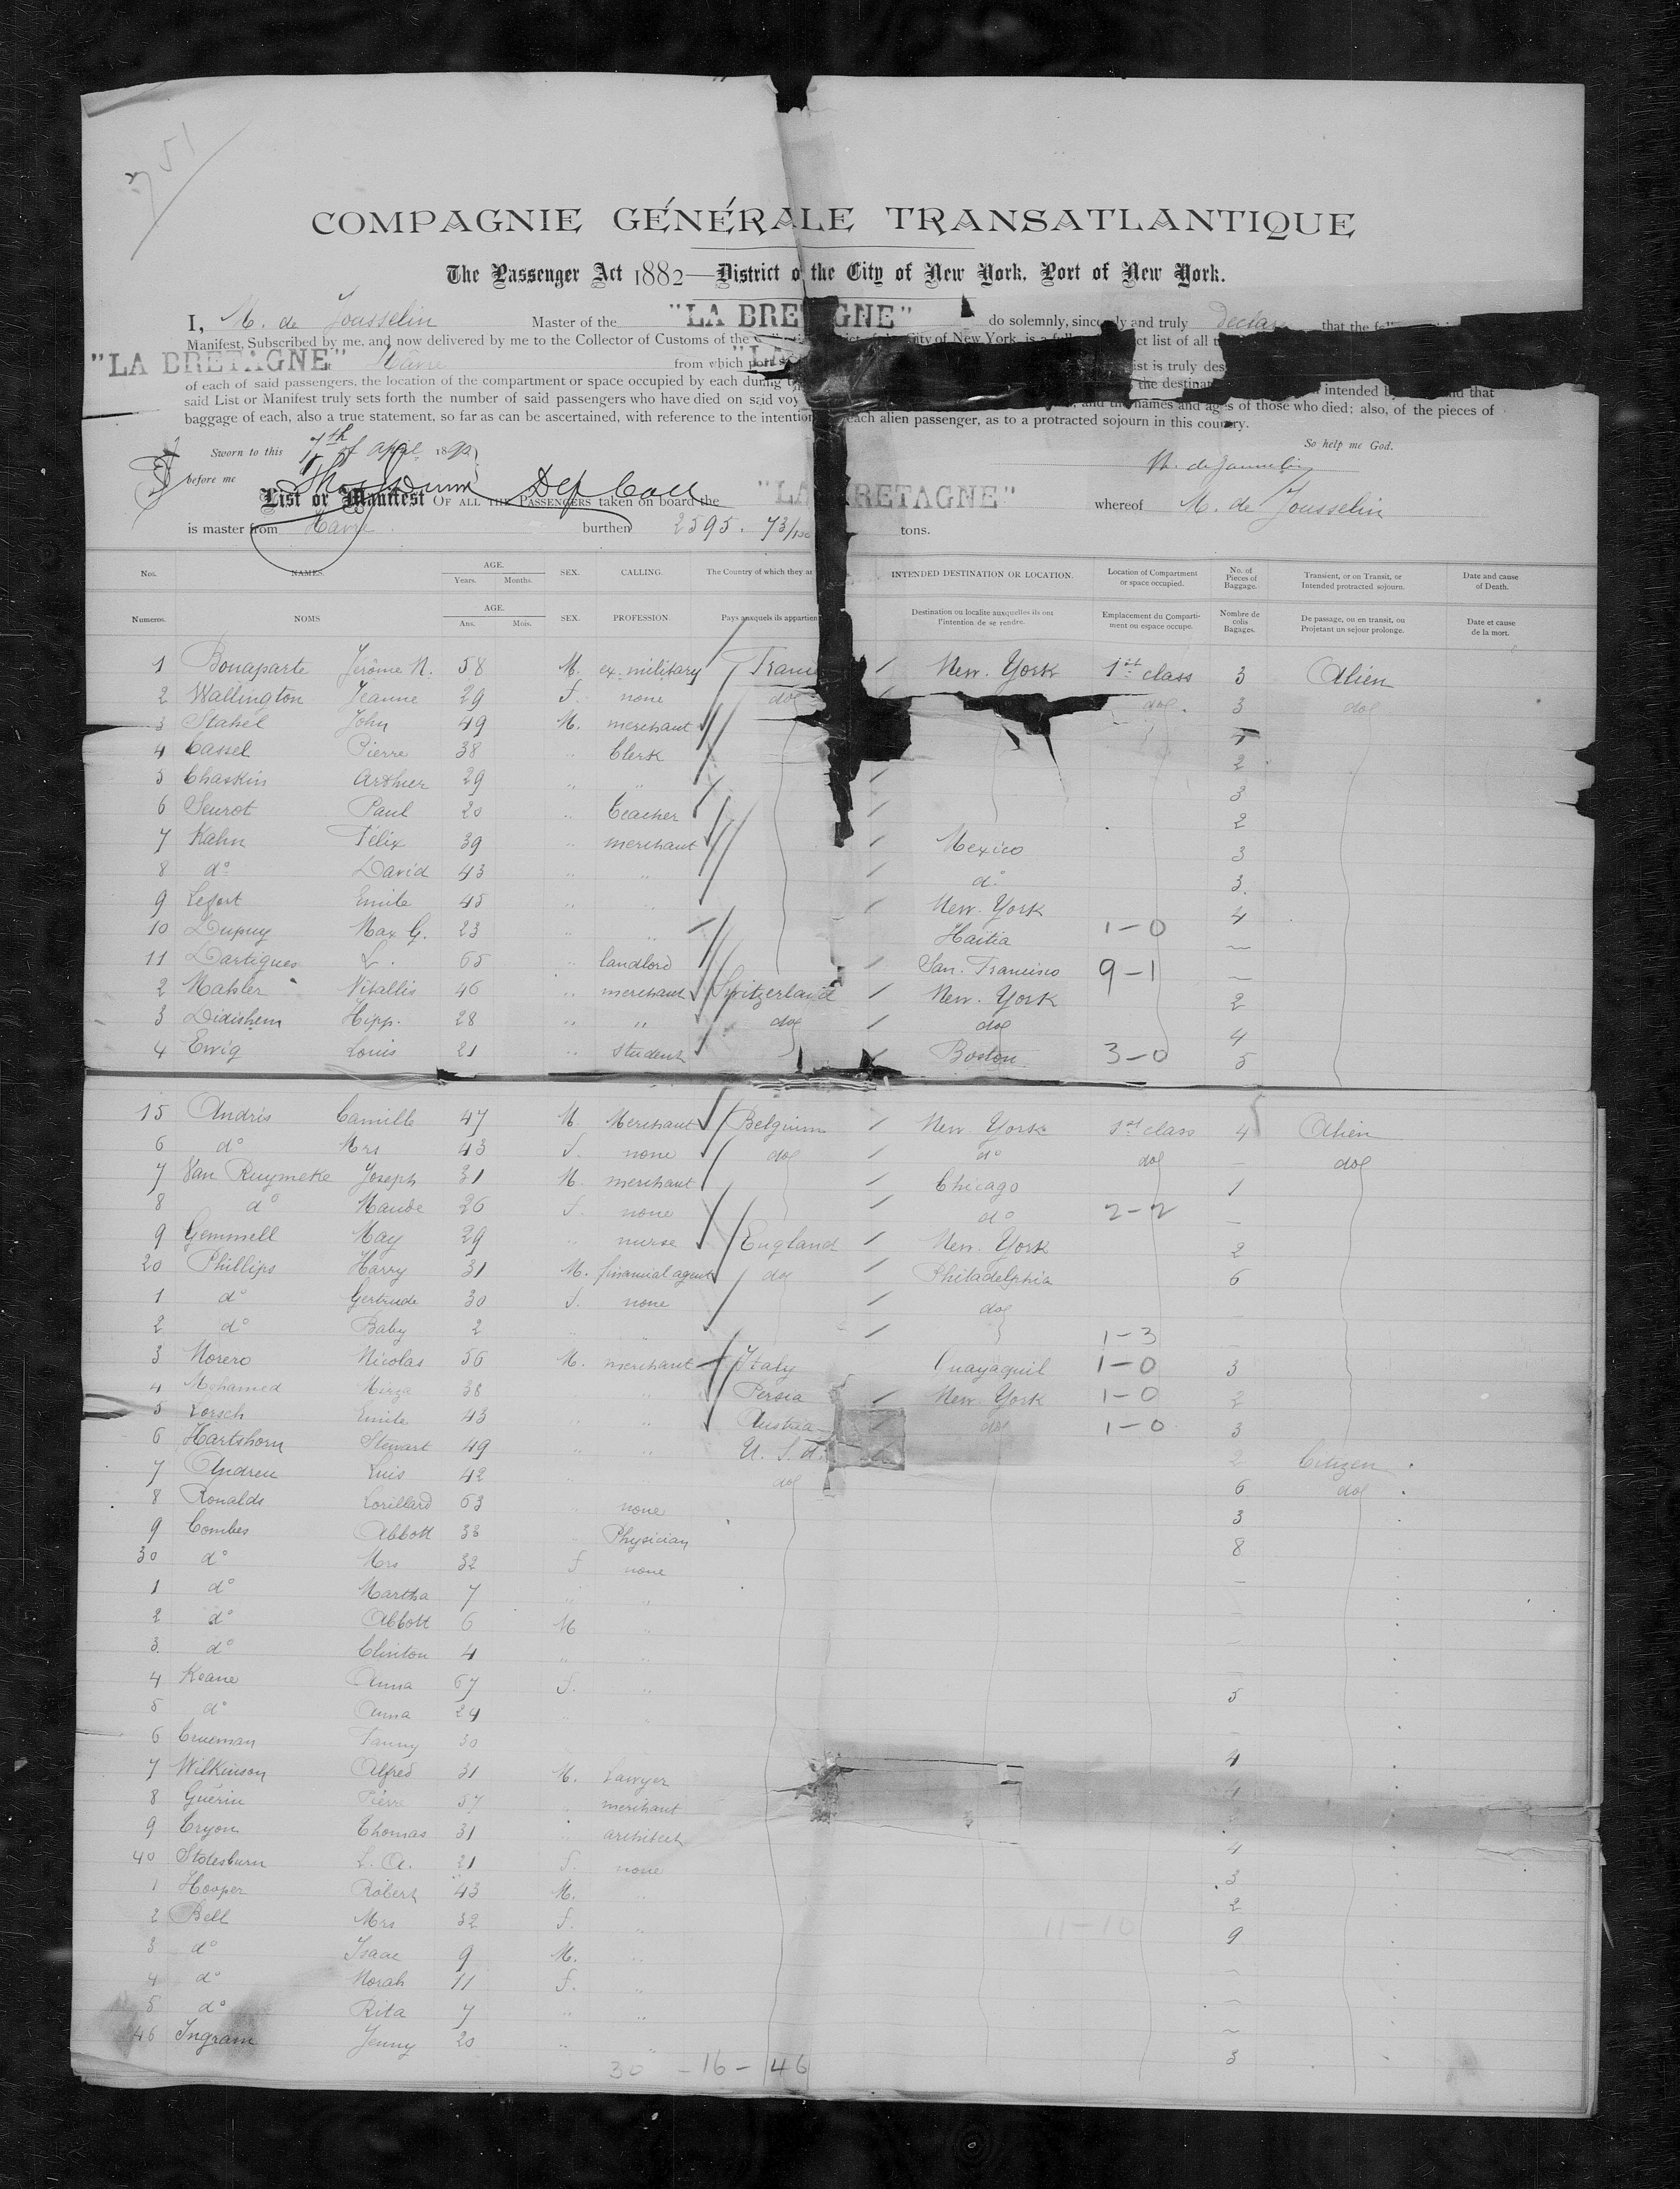 751
COMPAGNIE GÉNÉRALE TRANSATLANTIQUE
The Passenger Act 1882—District of the City of New York, Port of New York.
I, M. de Jousselin Master of the "LA BRETAGNE" do solemnly, sincerely and truly declare that the
Manifest, Subscribed by me, and now delivered by me to the Collector of Customs of the City of New York, is a list of all
"LA BRETAGNE" Havre from which port list is truly
of each of said passengers, the location of the compartment or space occupied by each during the intended
said List or Manifest truly sets forth the number of said passengers who have died on said and the names and ages of those who died; also, of the pieces of
baggage of each, also a true statement, so far as can be ascertained, with reference to the intention each alien passenger, as to a protracted sojourn in this country.
So help me God.
Sworn to this 7th of April 189
before me
M. de Jousselin
List or Manifest OF ALL THE PASSENGERS taken on board the "LA BRETAGNE" whereof M. de Jousselin
is master from Havre. burthen 2595. 73/100 tons.
Nos. NAMES. AGE. Years. Months. SEX. CALLING. The Country of which they INTENDED DESTINATION OR LOCATION. Location of Compartment or space occupied. No. of Pieces of Baggage. Transient, or on Transit, or Intended protracted sojourn. Date and cause of Death.
Numeros. NOMS AGE. Ans. Mois. SEX. PROFESSION. Pays auxquels ils Destination ou localite auxquelles ils ont l'intention de se rendre. Emplacement du Comparti-ment ou espace occupe. Nombre de colis Bagages. De passage, ou en transit, ou Projetant un sejour prolonge. Date et cause de la mort.
1 Bonaparte Jérôme N. 58 M. ex. military France New. York 1st class 3 Alien
2 Wallington Jeanne 29 f. none do do. 3 do
3 Stahel John 49 M. merchant
4 Cassel Pierre 38 " Clerk 2
5 Chaskin Arthur 29 " " 3
6 Seurot Paul 20 " teacher 2
7 Kahn Félix 39 merchant Mexico 3
8 do David 43 " " do 3.
9 Lefort Emile 45 " " New. York 4
10 Dupuy Max G. 23 " " Haitia 1-0 —
11 Dartigues L. 65 " landlord San. Francisco 9-1 —
2 Mahler Vitallis 46 " merchant Switzerland New. York 2
3 Didishem Hipp. 28 " " do do 4
4 Ewig Louis 21 " student Boston 3-0 5
15 Andris Camille 47 M. Merchant Belgium New York 1st class 4 Alien
6 do Mrs 43 f. none do do do — do
7 Van Ruymeke Joseph 31 M. merchant Chicago 1
8 do Maude 26 f. none do 2-2 —
9 Gemmell May 29 " nurse England New. York 2
20 Phillips Harry 31 M. financial agent do Philadelphia 6
1 do Gertrude 30 f. none do —
2 do Baby 2 " " 1-3 —
3 Morero Nicolas 56 M. merchant Italy Guayaquil 1-0 3
4 Mohamed Mirza 38 " " Persia New York 1-0 2
5 Lorsch Emile 43 " " Austria do 1-0 3
6 Hartshorn Stewart 49 " " U. S. A. 2 Citizen
7 Andreu Luis 42 " do 6 do
8 Ronalds Lorillard 63 " none 3
9 Combes Abbott 38 " Physician 8
30 do Mrs 32 f none —
1 do Martha 7 " " —
2 do Abbott 6 M " —
3 do Clinton 4 " " —
4 Keane Anna 67 f. " 5
5 do Anna 24 " " —
6 Crueman Fanny 30 4
7 Wilkinson Alfred 31 M. Lawyer 4
8 Guérin Pierre 57 " merchant
9 Tryon Thomas 31 " architect 4
40 Stolesburn L. A. 21 f. none 3
1 Hooper Robert 43 M. " 2
2 Bell Mrs 32 f. " 11-10 9
3 do Isaac 9 M. " —
4 do Norah 11 f. " —
5 do Rita 7 " " —
46 Ingram Jenny 20 " " 3
30 - 16 - 46